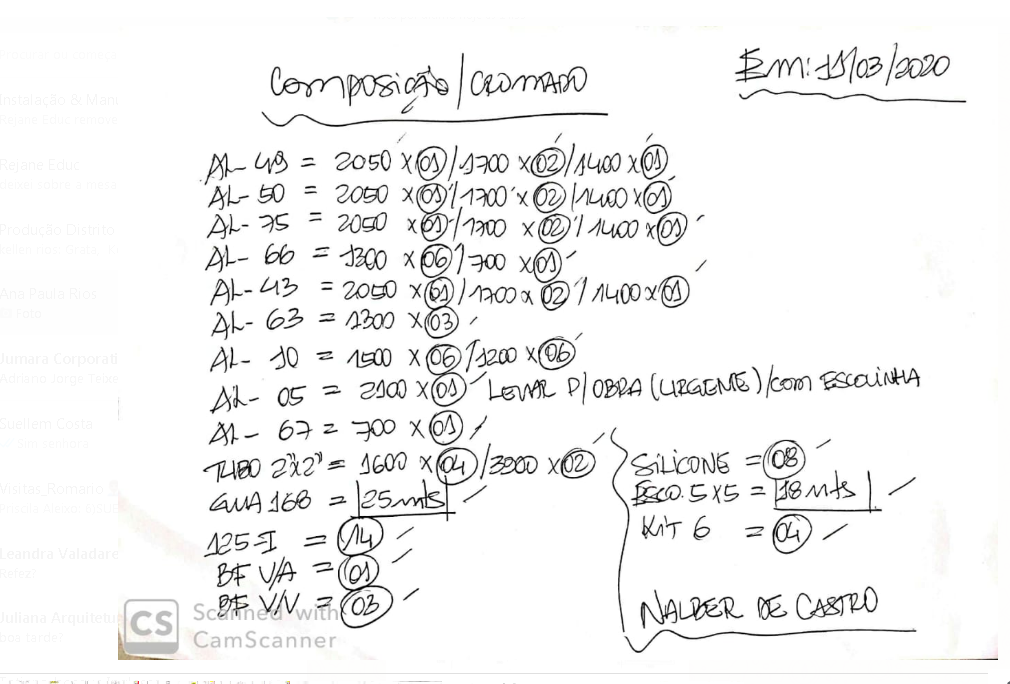 Composição/CROMADO
Em: 11/03/2020
AL-49 = 2050 x 01/1700 x 02/1400 x 01
AL-50 = 2050 x 01/1700 x 02/1400 x 01
AL-75 = 2050 x 01/1700 x 02/1400 x 01
AL-66 = 1300 x 06/700 x 01
AL-43 = 2050 x 01/1700 x 02/1400 x 01
AL-63 = 1300 x 03
AL-10 = 1500 x 06/1200 x 06
AL-05 = 2100 x 01 LEVAR P/OBRA (URGENTE)/com ESCOVINHA
AL-67 = 700 x 01
TUBO 2"x2" = 1600 x 04/3900 x 02
GUA 168 = 25 mts
125-I = 14
BF V/A = 01
BF V/V = 03
SILICONE = 08
ESCO. 5x5 = 18 mts
KiT 6 = 04
NALBER DE CASTRO
CS Scanned with
CamScanner
Instalação & Man
Rejane Educ
Produção Distrito
Ana Paula Rios
Foto
Jumara Corporati
Adriano Jorge Teixe
Suellem Costa
Visitas_Romano
Leandra Valadare
Juliana Arquitetu
boa tarde